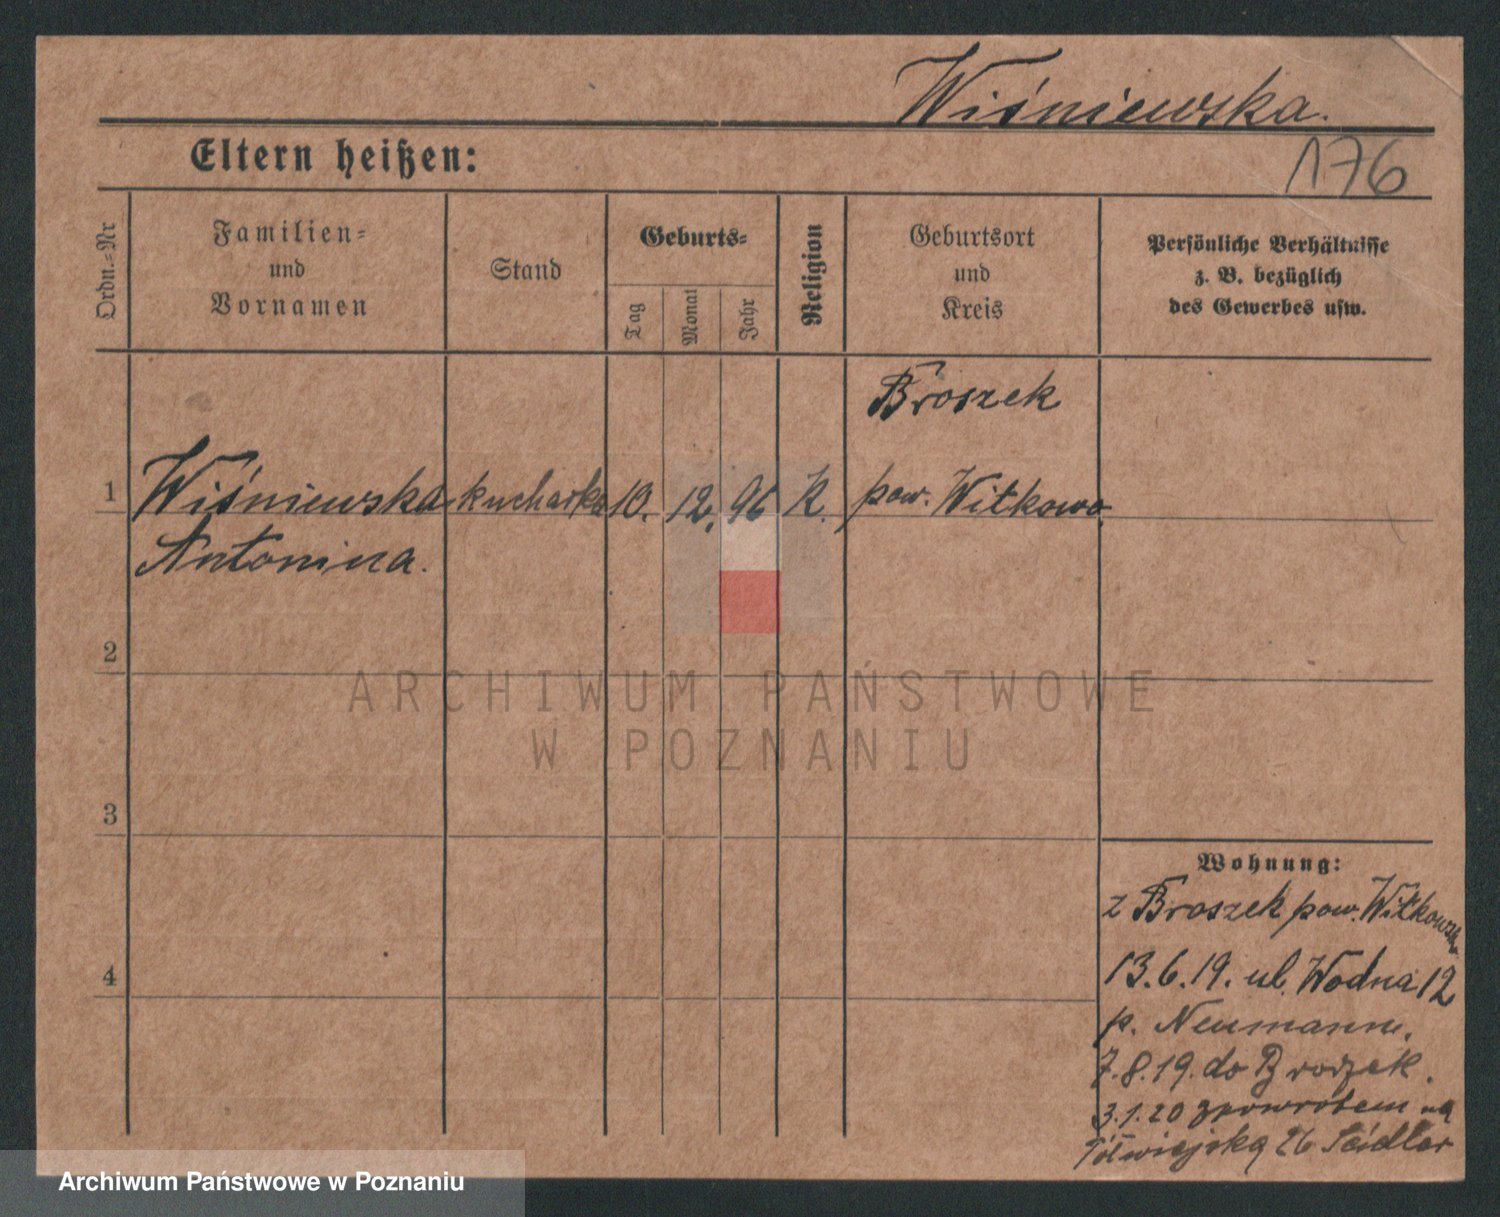 Wiśniewska.
176
Eltern heißen:
Ordn.-Nr
Familien-
und
Vornamen
Stand
Geburts-
Tag
Monat
Jahr
Religion
Geburtsort
und
Kreis
Persönliche Verhältnisse
z. B. bezüglich
des Gewerbes usw.
Broszek
1 Wiśniewska kucharka 10. 12. 96 K. pow. Witkowo
Antonina.
2
3
4
Wohnung:
z Broszek pow. Witkowski
13.6.19. ul. Wodna 12
p. Neumann.
7.8.19. do
3.1.20 zpowrotem na
Półwiejską 26 Seidler
ARCHIWUM PAŃSTWOWE
W POZNANIU
Archiwum Państwowe w Poznaniu